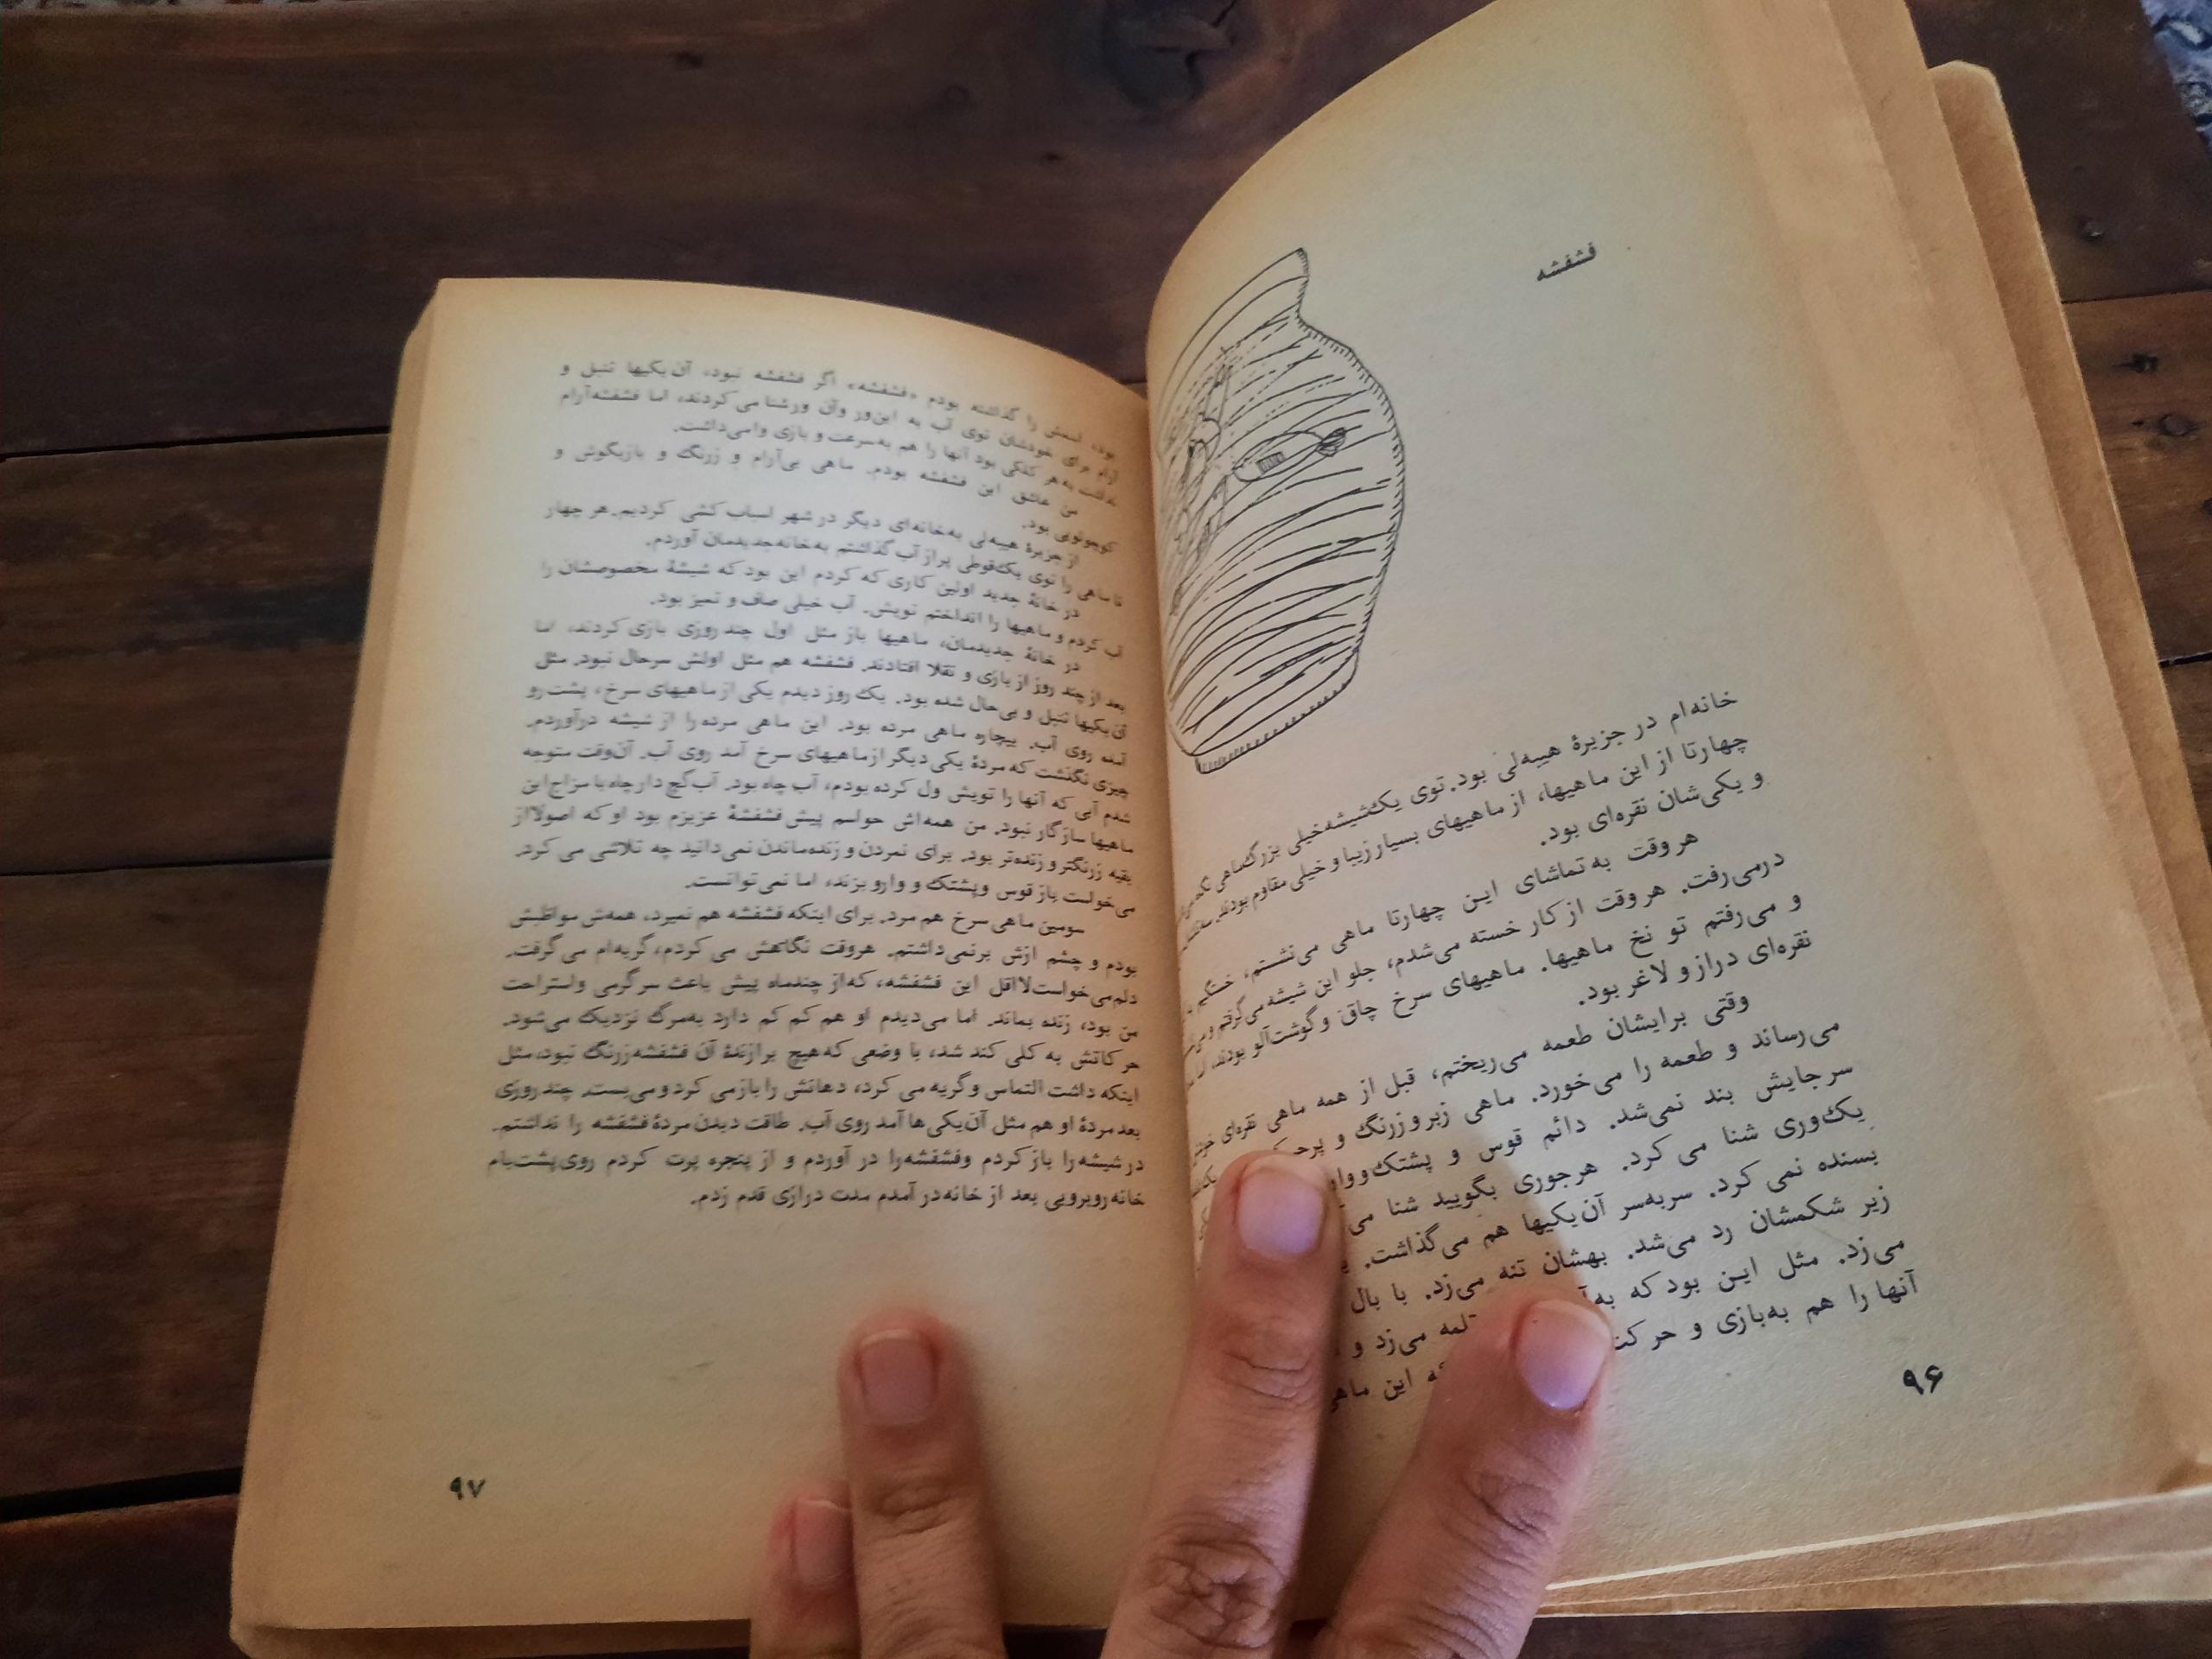 فشفشه
خانه‌ام در جزیرهٔ هیبه‌لی بود. توی یک شیشه خیلی بزرگ ماهی نگه
چهارتا از این ماهیها، از ماهیهای بسیار زیبا و خیلی مقاوم بودند.
و یکی‌شان نقره‌ای بود.
هر وقت به تماشای این چهارتا ماهی می‌نشستم، خستگیم
درمی‌رفت. هر وقت از کار خسته می‌شدم، جلو این شیشه می‌گرفتم
و می‌رفتم تو نخ ماهیها. ماهیهای سرخ چاق و گوشت‌آلو بودند، اما
نقره‌ای دراز و لاغر بود.
وقتی برایشان طعمه می‌ریختم، قبل از همه ماهی نقره‌ای
می‌رساند و طعمه را می‌خورد. ماهی زبر و زرنگ و
سر جایش بند نمی‌شد. دائم قوس و پشتک و
یک‌وری شنا می کرد. هرجوری بگویید شنا
بسنده نمی کرد. سربه‌سر آن‌یکیها هم می‌گذاشت.
زیر شکمشان رد می‌شد. بهشان تنه می‌زد. با بال
می‌زد. مثل این بود که می‌زد و
آنها را هم به‌بازی و این
۹۶
بود، اسمش را گذاشته بودم «فشفشه» اگر فشفشه نبود، آن یکیها تنبل و
آرام برای خودشان توی آب به این‌ور و آن ور شنا می کردند، اما فشفشه آرام
نداشت به هر کلکی بود آنها را هم به‌سرعت و بازی وامی‌داشت.
من عاشق این فشفشه بودم. ماهی بی‌آرام و زرنگ و بازیگوش و
کوچولویی بود.
از جزیرهٔ هیبه‌لی به‌خانه‌ای دیگر در شهر اسباب کشی کردیم. هر چهار
تا ماهی را توی یک قوطی پر از آب گذاشتم به‌خانه جدیدمان آوردم.
در خانهٔ جدید اولین کاری که کردم این بود که شیشهٔ مخصوصشان را
آب کردم و ماهیها را انداختم تویش. آب خیلی صاف و تمیز بود.
در خانهٔ جدیدمان، ماهیها باز مثل اول چند روزی بازی کردند، اما
بعد از چند روز از بازی و تقلا افتادند. فشفشه هم مثل اولش سرحال نبود. مثل
آن یکیها تنبل و بی‌حال شده بود. یک روز دیدم یکی از ماهیهای سرخ، پشت رو
آمده روی آب. بیچاره ماهی مرده بود. این ماهی مرده را از شیشه درآوردم.
چیزی نگذشت که مردهٔ یکی دیگر از ماهیهای سرخ آمد روی آب. آن‌وقت متوجه
شدم آبی که آنها را تویش ول کرده بودم، آب چاه بود. آب گچ دار چاه با مزاج این
ماهیها سازگار نبود. من همه‌اش حواسم پیش فشفشهٔ عزیزم بود او که اصولا از
بقیه زرنگتر و زنده‌تر بود. برای نمردن و زنده‌ماندن نمی‌دانید چه تلاشی می کرد.
می‌خواست باز قوس و پشتک و وارو بزند، اما نمی‌توانست.
سومین ماهی سرخ هم مرد. برای اینکه فشفشه هم نمیرد، همه‌ش مواظبش
بودم و چشم ازش برنمی‌داشتم. هروقت نگاهش می کردم، گریه‌ام می گرفت.
دلم می‌خواست لااقل این فشفشه، که از چندماه پیش باعث سرگرمی و استراحت
من بود، زنده بماند. اما می‌دیدم او هم کم کم دارد به‌مرگ نزدیک می‌شود.
حر کاتش به کلی کند شد، با وضعی که هیچ برازندهٔ آن فشفشه زرنگ نبود، مثل
اینکه داشت التماس و گریه می کرد، دهانش را باز می کرد و می‌بست. چند روزی
بعد مردهٔ او هم مثل آن‌یکی‌ها آمد روی آب. طاقت دیدن مردهٔ فشفشه را نداشتم.
در شیشه را باز کردم و فشفشه را در آوردم و از پنجره پرت کردم روی پشت‌بام
خانه روبرویی بعد از خانه در آمدم مدت درازی قدم زدم.
۹۷